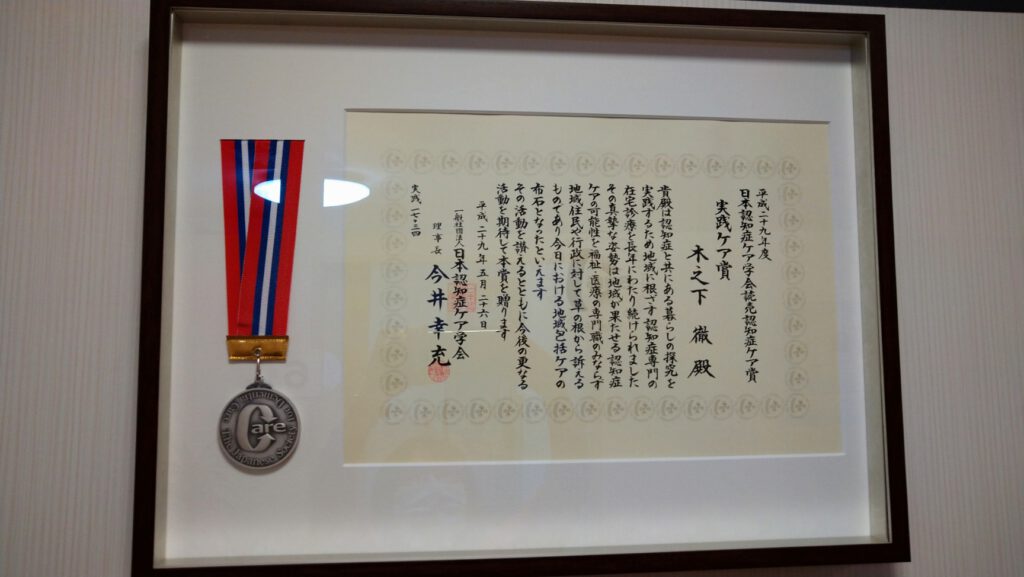 平成二十九年度
日本認知症ケア学会・読売認知症ケア賞
実践ケア賞
木之下 徹 殿
貴殿は認知症と共にある暮らしの探究を
実践するため地域に根ざす認知症専門の
在宅診療を長年にわたり続けられました
その真摯な姿勢は地域が果たせる認知症
ケアの可能性を福祉・医療の専門職のみならず
地域住民や行政に対して草の根から訴える
ものであり今日における地域包括ケアの
布石となったといえます
その活動を讃えるとともに今後の更なる
活動を期待して本賞を贈ります
平成二十九年五月二十六日
一般社団法人日本認知症ケア学会
理事長 今井幸充
実践 一七-〇四
Care
The Japanese Society for Dementia Care